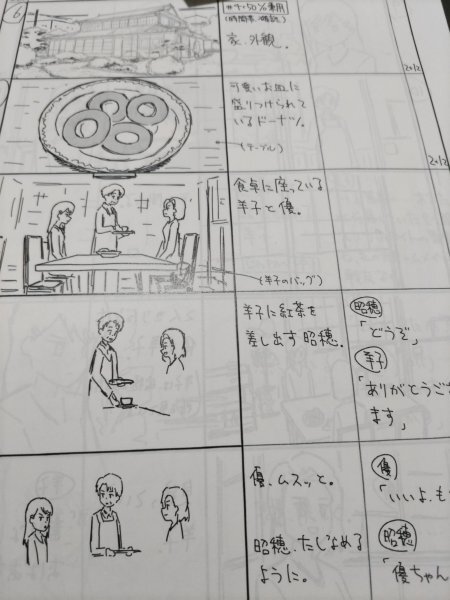 6
(時間帯、確認)
家、外観。
可愛いお皿に
盛りつけられて
いるドーナツ。
(テーブル)
食卓に座っている
羊子と優。
(羊子のバッグ)
羊子に紅茶を
差し出す昭穂。
昭穂
「どうぞ」
羊子
「ありがとうござ
ます」
優、ムスッと。
優
「いいよ、も
昭穂、たしなめる
ように。
昭穂
「優ちゃん